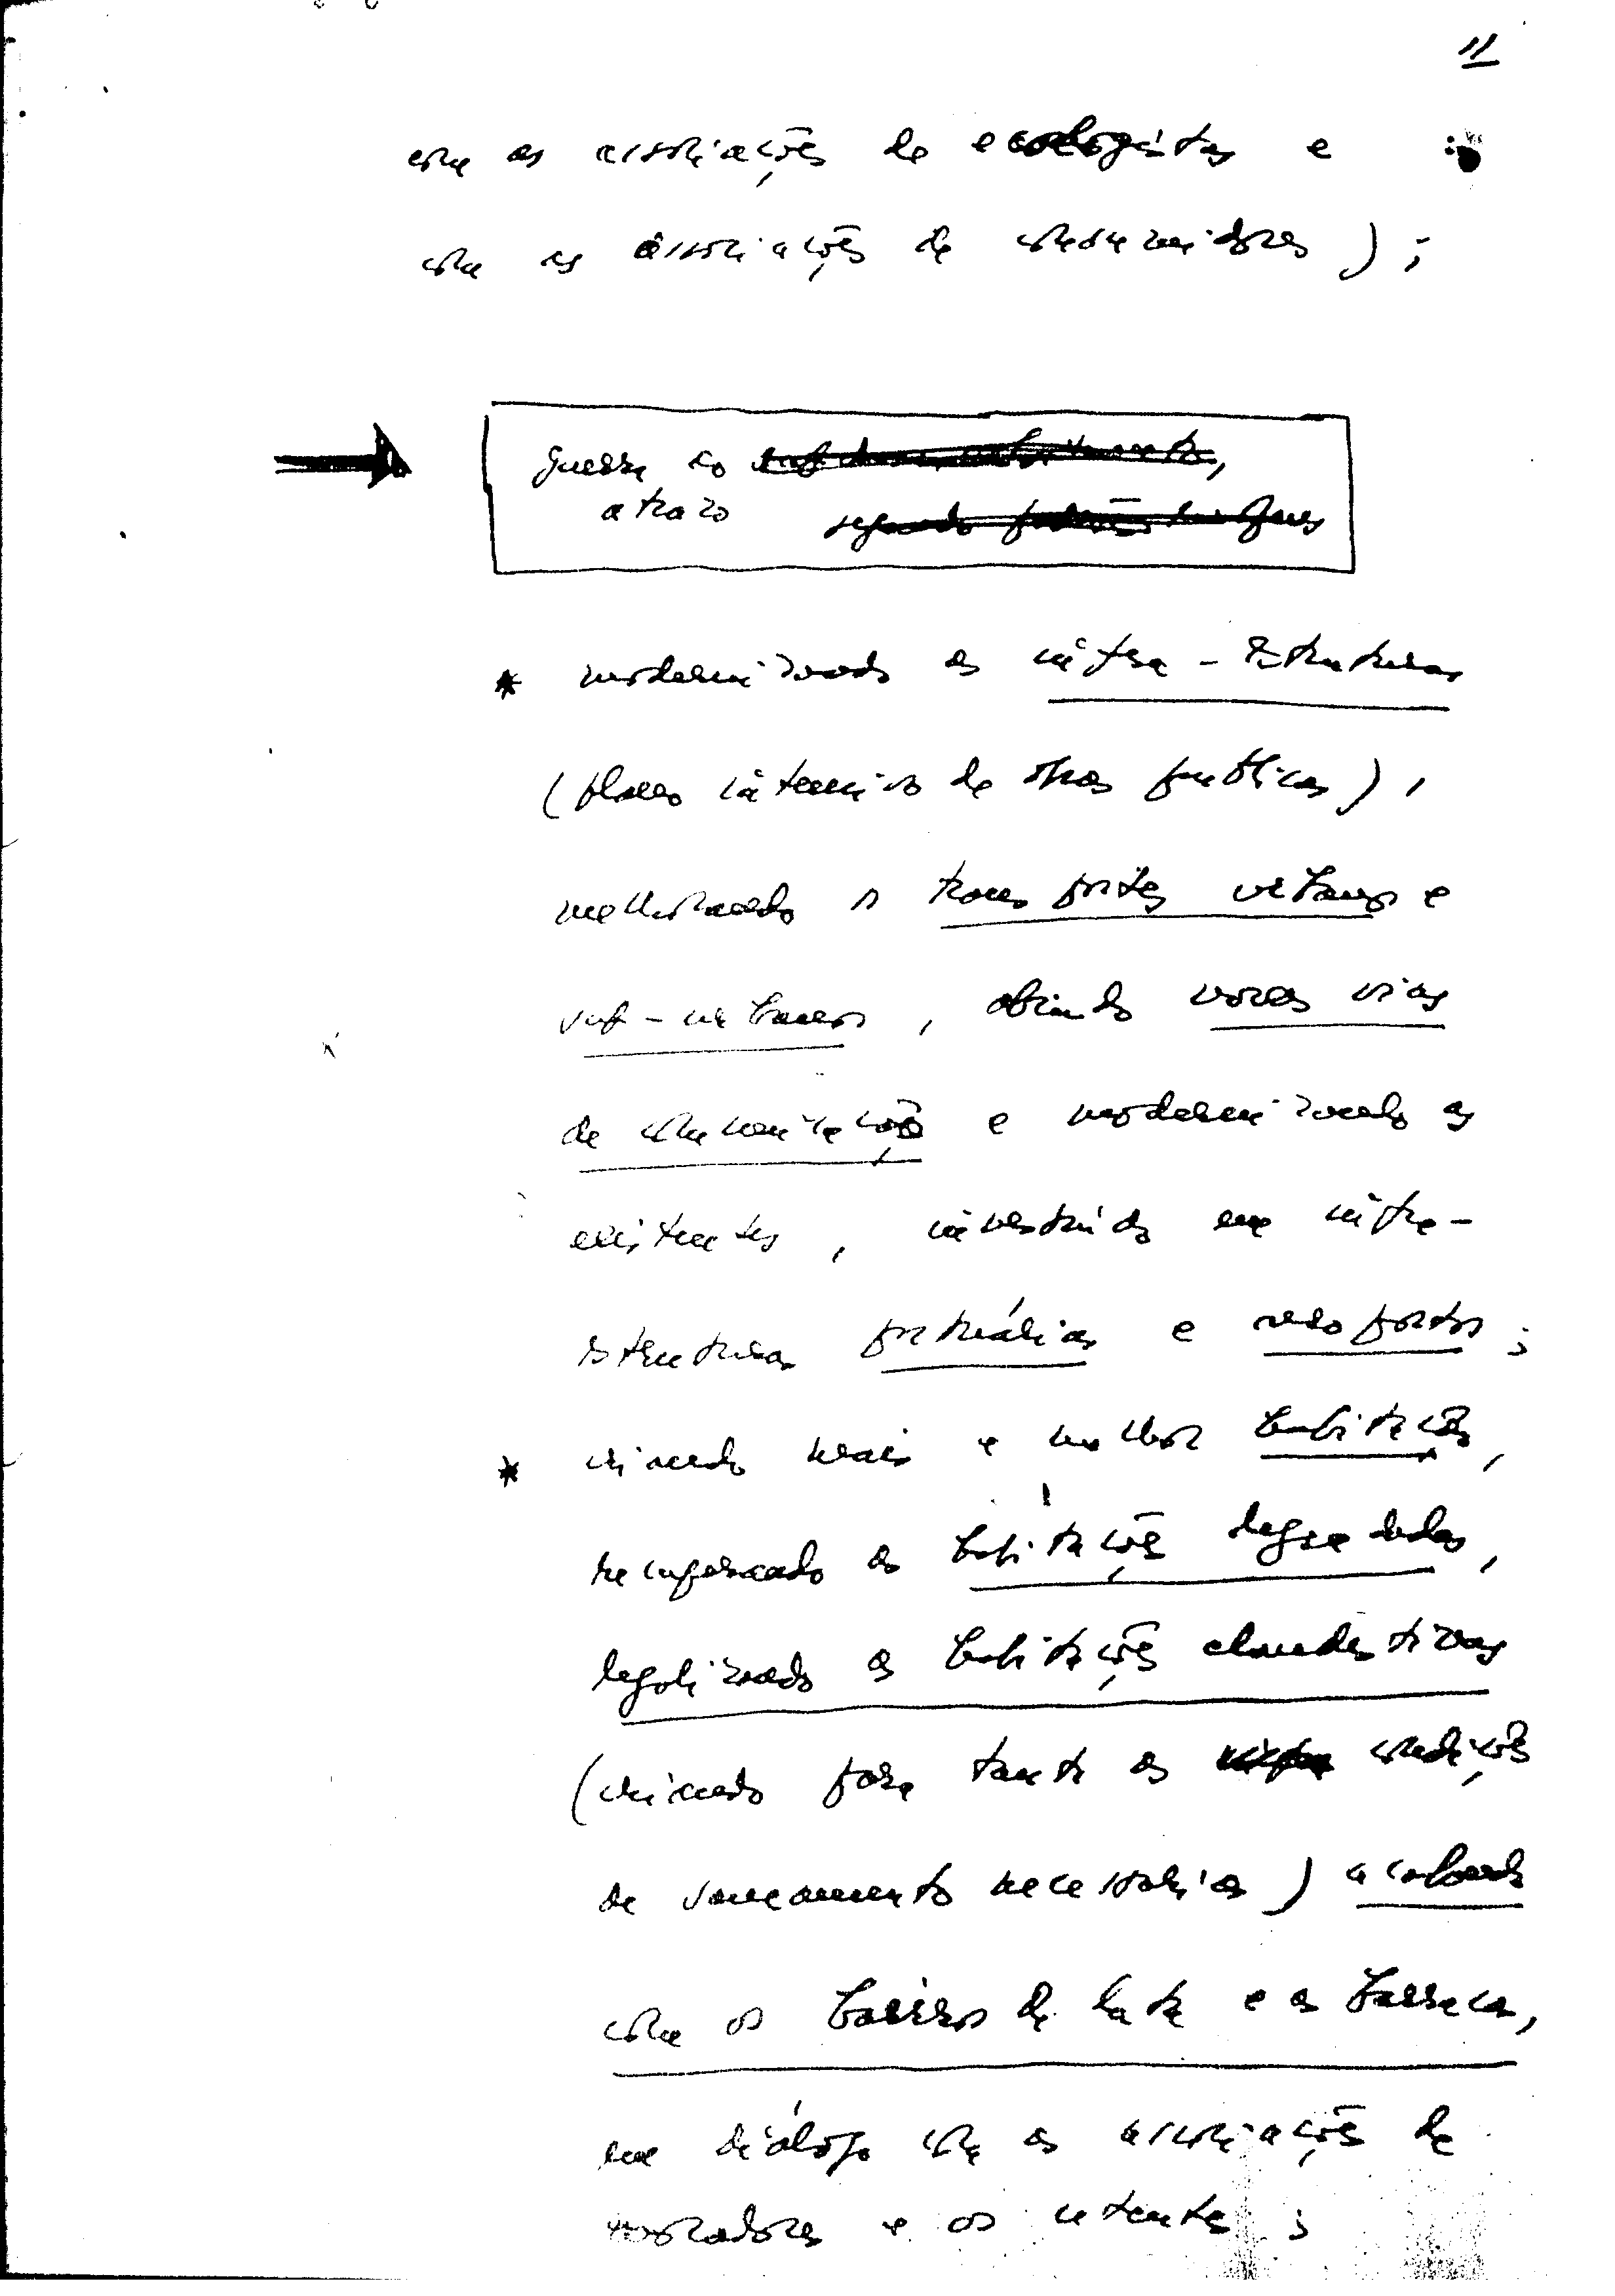 11
com as associações de ecologistas e
com as associações de consumidores) ;
guerra ao subdesenvolvimento,
atrazo segundo padrões
* modernizando as infra-estruturas
(plano intensivo de obras publicas),
melhorando os transportes urbanos e
sub-urbanos, abrindo novas vias
de comunicação e modernizando as
existentes, investindo em infra-
estruturas portuárias e aeroportos ;
* criando mais e melhor habitação,
recuperando as habitações degradadas,
legalizando as habitações clandestinas
(criando para tanto as condições
de saneamento necessárias) acabando
com os bairros de lata e as barracas,
em diálogo com as associações de
moradores e os utentes ;